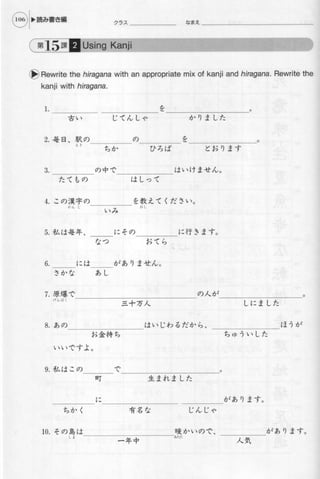 106 ▶読み書き編
クラス なまえ
第15課 2 Using Kanji
Rewrite the hiragana with an appropriate mix of kanji and hiragana. Rewrite the
kanji with hiragana.
1. を 。
古い じてんしゃ かりました
2. 毎日、駅の の を 。
えき ちか ひろば とおります
3. の中で はいけません。
たてもの はしって
4. この漢字の を教えてください。
かんじ いみ おし
5. 私は毎年、 にその に行きます。
なつ おてら
6. には がありません。
さかな あし
7. 原爆で の人が 。
げんばく 三十万人 しにました
8. あの はいじわるだから、 ほうが
お金持ち ちゅういした
いいですよ。
9. 私はこの で 。
町 生まれました
に があります。
ちかく 有名な じんじゃ
10. その島は 暖かいので、 があります。
しま 一年中 あたた 人気